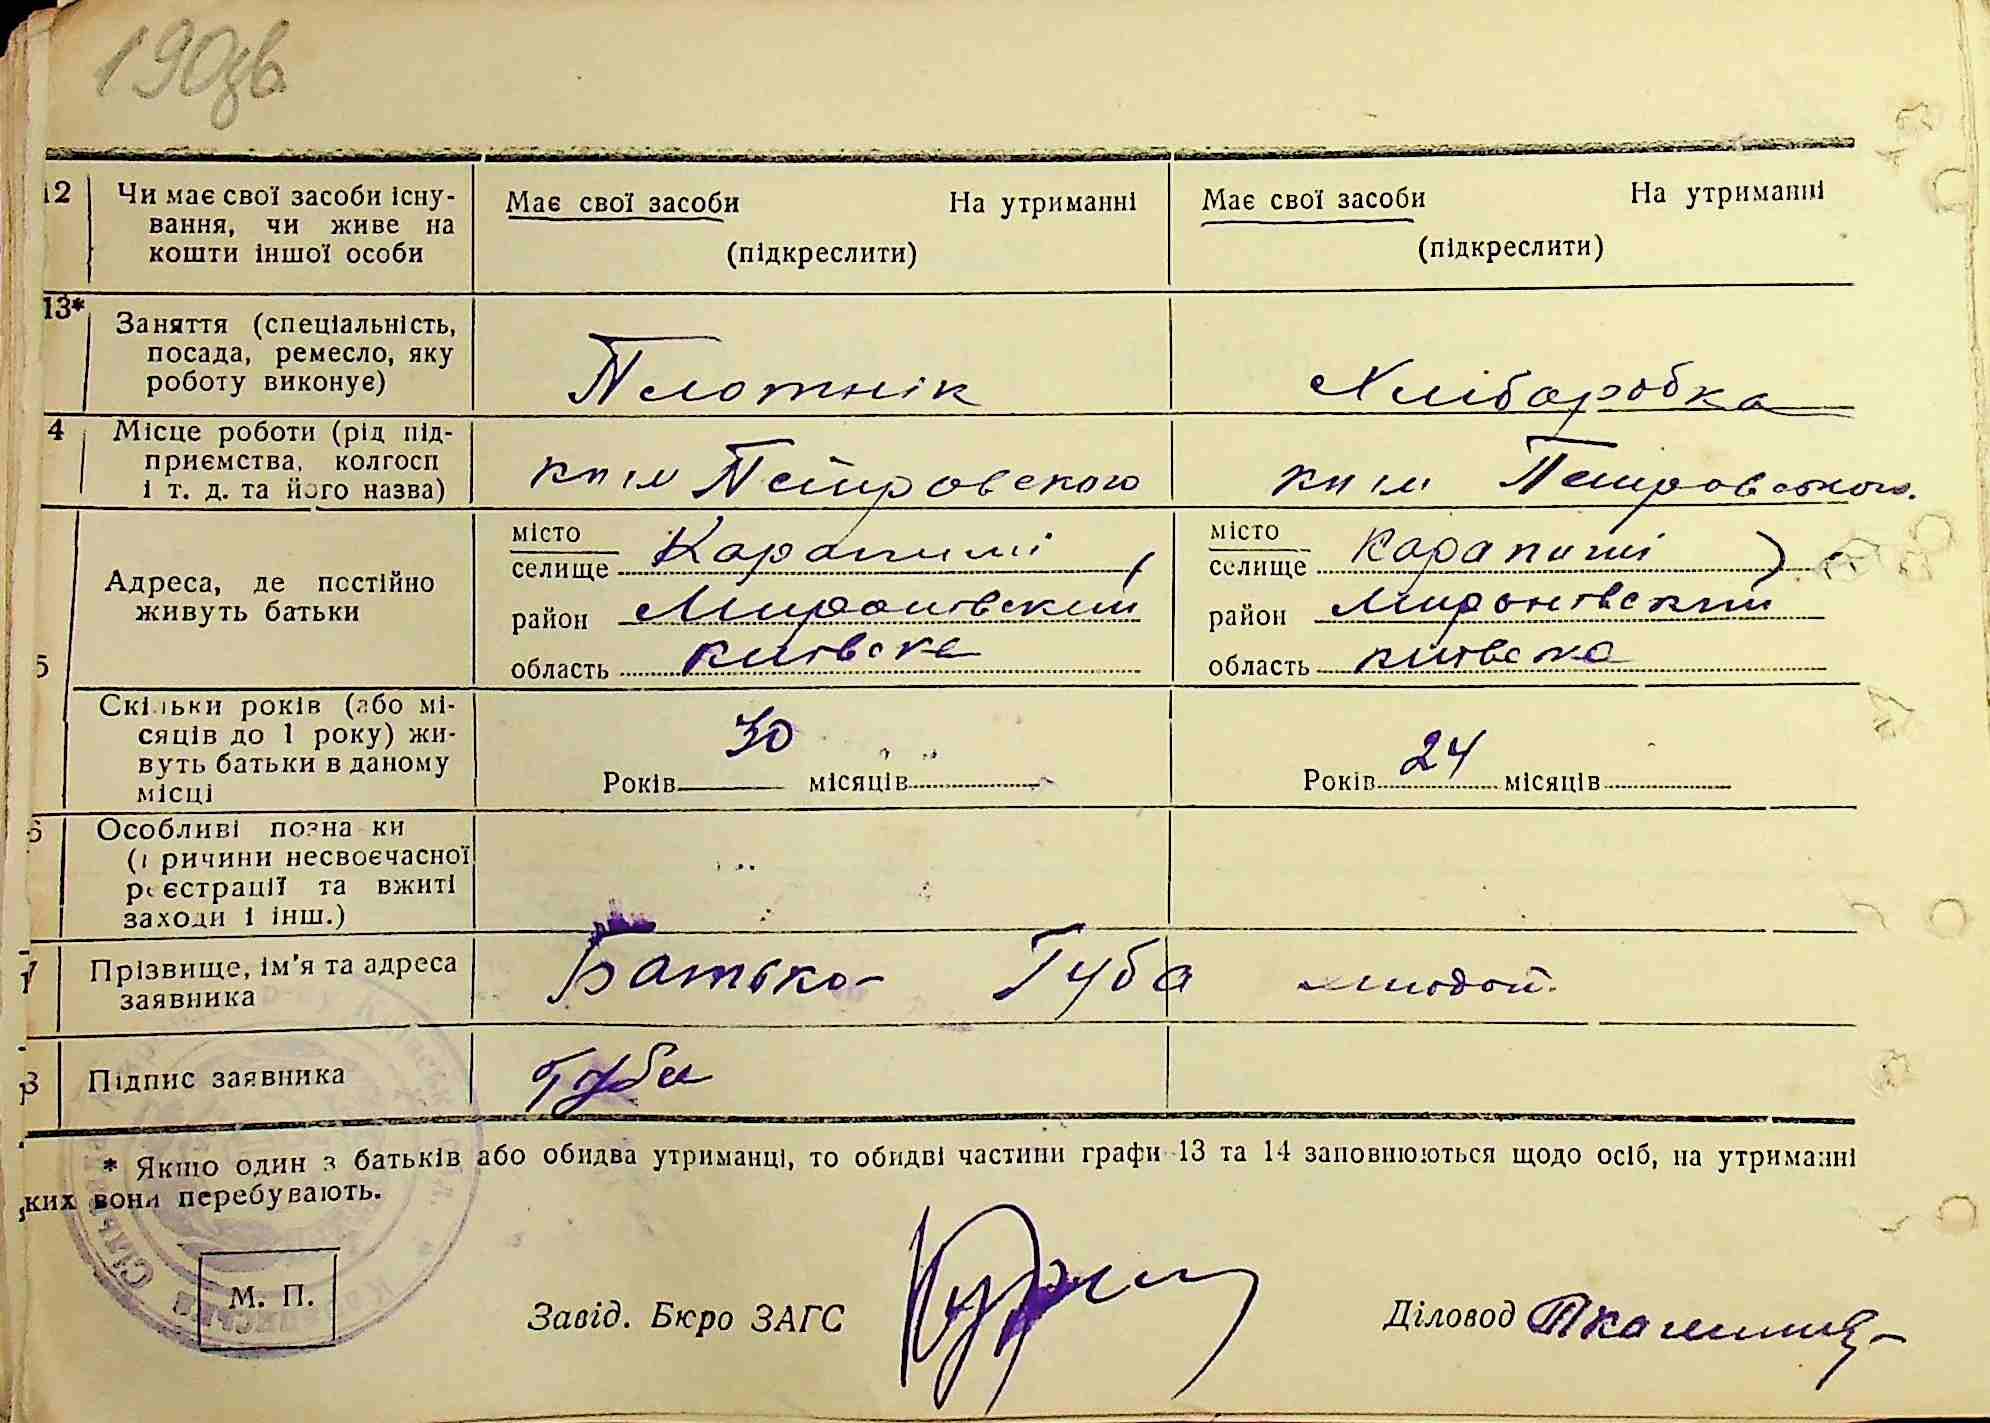 190зв
12 Чи має свої засоби існу-
вання, чи живе на
кошти іншої особи
Має свої засоби На утриманні
(підкреслити)
Має свої засоби На утриманні
(підкреслити)
13* Заняття (спеціальність,
посада, ремесло, яку
роботу виконує)
Плотнік
Хлібаробка
4 Місце роботи (рід під-
приємства, колгосп
і т. д. та його назва)
кп ім Петровского
кп ім Петровського.
5 Адреса, де постійно
живуть батьки
місто
селище Карапиші
район Миронівский
область київска
місто
селище Карапиші
район Миронівский
область київска
Скільки років (або мі-
сяців до 1 року) жи-
вуть батьки в даному
місці
Років 30 місяців
Років 24 місяців
6 Особливі познаки
(причини несвоєчасної
реєстрації та вжиті
заходи і інш.)
7 Прізвище, ім'я та адреса
заявника
Батько- Губа
8 Підпис заявника
Губа
* Якщо один з батьків або обидва утриманці, то обидві частини графи 13 та 14 заповнюються щодо осіб, на утриманні
яких вони перебувають.
М. П.
Завід. Бюро ЗАГС
Діловод